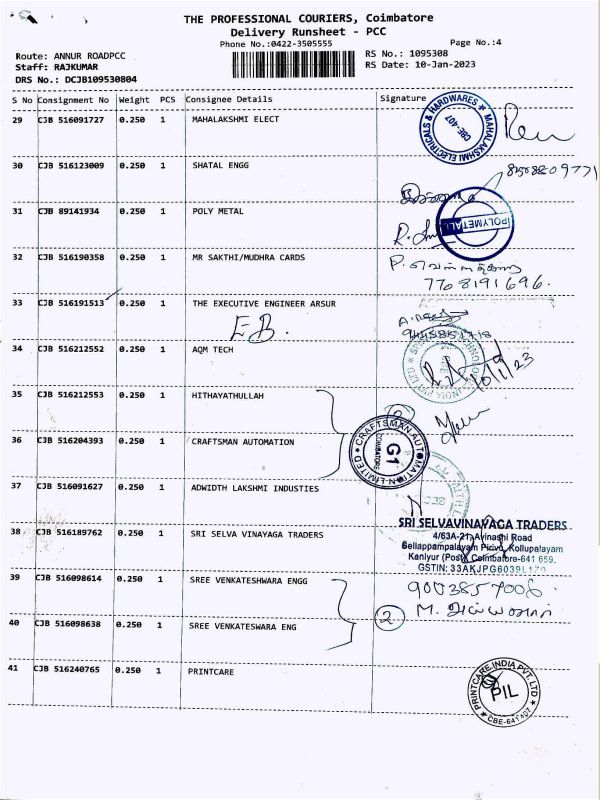 THE PROFESSIONAL COURIERS, Coimbatore
Delivery Runsheet - PCC
Phone No.:0422-3505555
Page No.:4
Route: ANNUR ROADPCC
RS No.: 1095308
Staff: RAJKUMAR
RS Date: 10-Jan-2023
DRS No.: DCJB109530804
S No Consignment No Weight PCS Consignee Details Signature
29 CJB 516091727 0.250 1 MAHALAKSHMI ELECT
MAHALAKSHMI ELECTRICALS & HARDWARES
CBE-407
30 CJB 516123009 0.250 1 SHATAL ENGG
31 CJB 89141934 0.250 1 POLY METAL
POLYMETAL
32 CJB 516190358 0.250 1 MR SAKTHI/MUDHRA CARDS
7768191696.
33 CJB 516191513 0.250 1 THE EXECUTIVE ENGINEER ARSUR
E-B.
34 CJB 516212552 0.250 1 AQM TECH
10/1/23
35 CJB 516212553 0.250 1 HITHAYATHULLAH
36 CJB 516204393 0.250 1 CRAFTSMAN AUTOMATION
CRAFTSMAN AUTOMATION LIMITED
G1
COIMBATORE
37 CJB 516091627 0.250 1 ADWIDTH LAKSHMI INDUSTIES
38 CJB 516189762 0.250 1 SRI SELVA VINAYAGA TRADERS
SRI SELVAVINAYAGA TRADERS
4/63A-21, Avinashi Road
Sellappampalayam Pirivu, Kollupalayam
Kaniyur (Post), Coimbatore-641 659.
GSTIN: 33AKJPG6039L1
39 CJB 516098614 0.250 1 SREE VENKATESHWARA ENGG
9003857006
2
40 CJB 516098638 0.250 1 SREE VENKATESWARA ENG
41 CJB 516240765 0.250 1 PRINTCARE
PRINTCARE INDIA PVT. LTD
PIL
CBE-641407